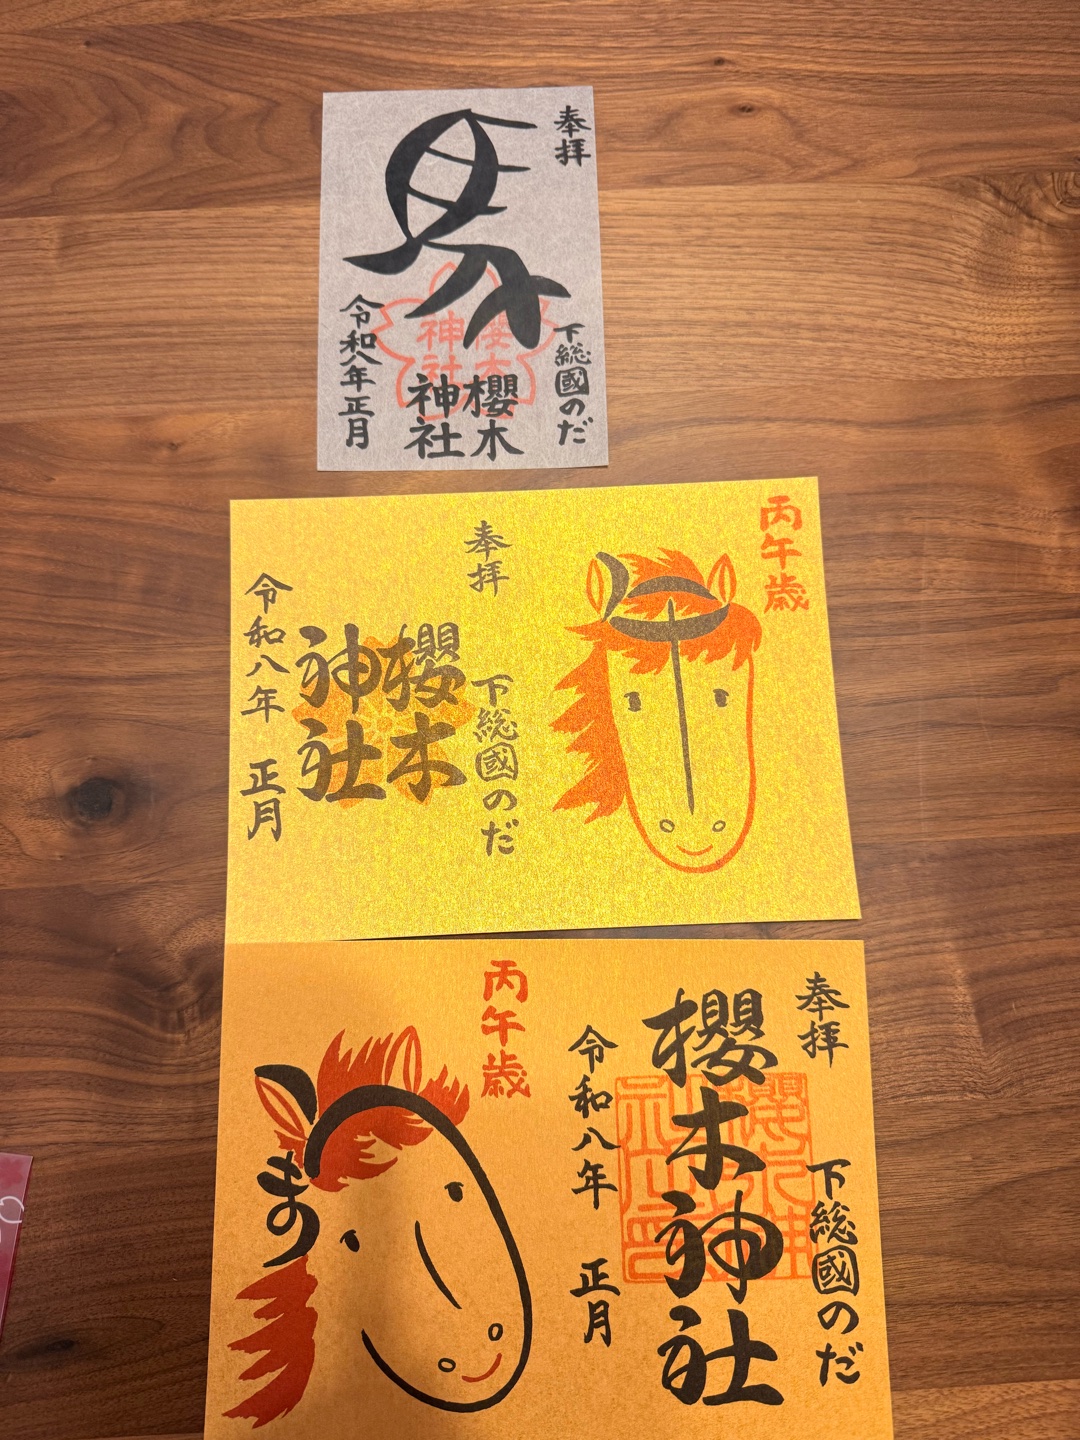 奉拝
下総國のだ
櫻木
神社
櫻木
神社
令和八年正月
丙午歳
奉拝
下総國のだ
櫻木
神社
令和八年 正月
奉拝
下総國のだ
櫻木神社
令和八年 正月
丙午歳